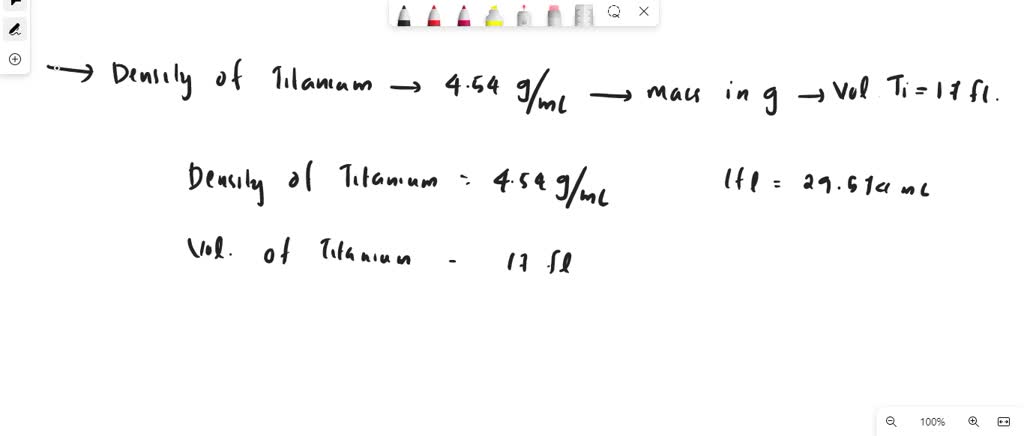 → Density of Titanium → 4.54 g/mL → mass in g → Vol Ti = 17 fl.
Density of Titanium = 4.54 g/mL 1fl = 29.574 mL
Vol. of Titanium - 17 fl
100%